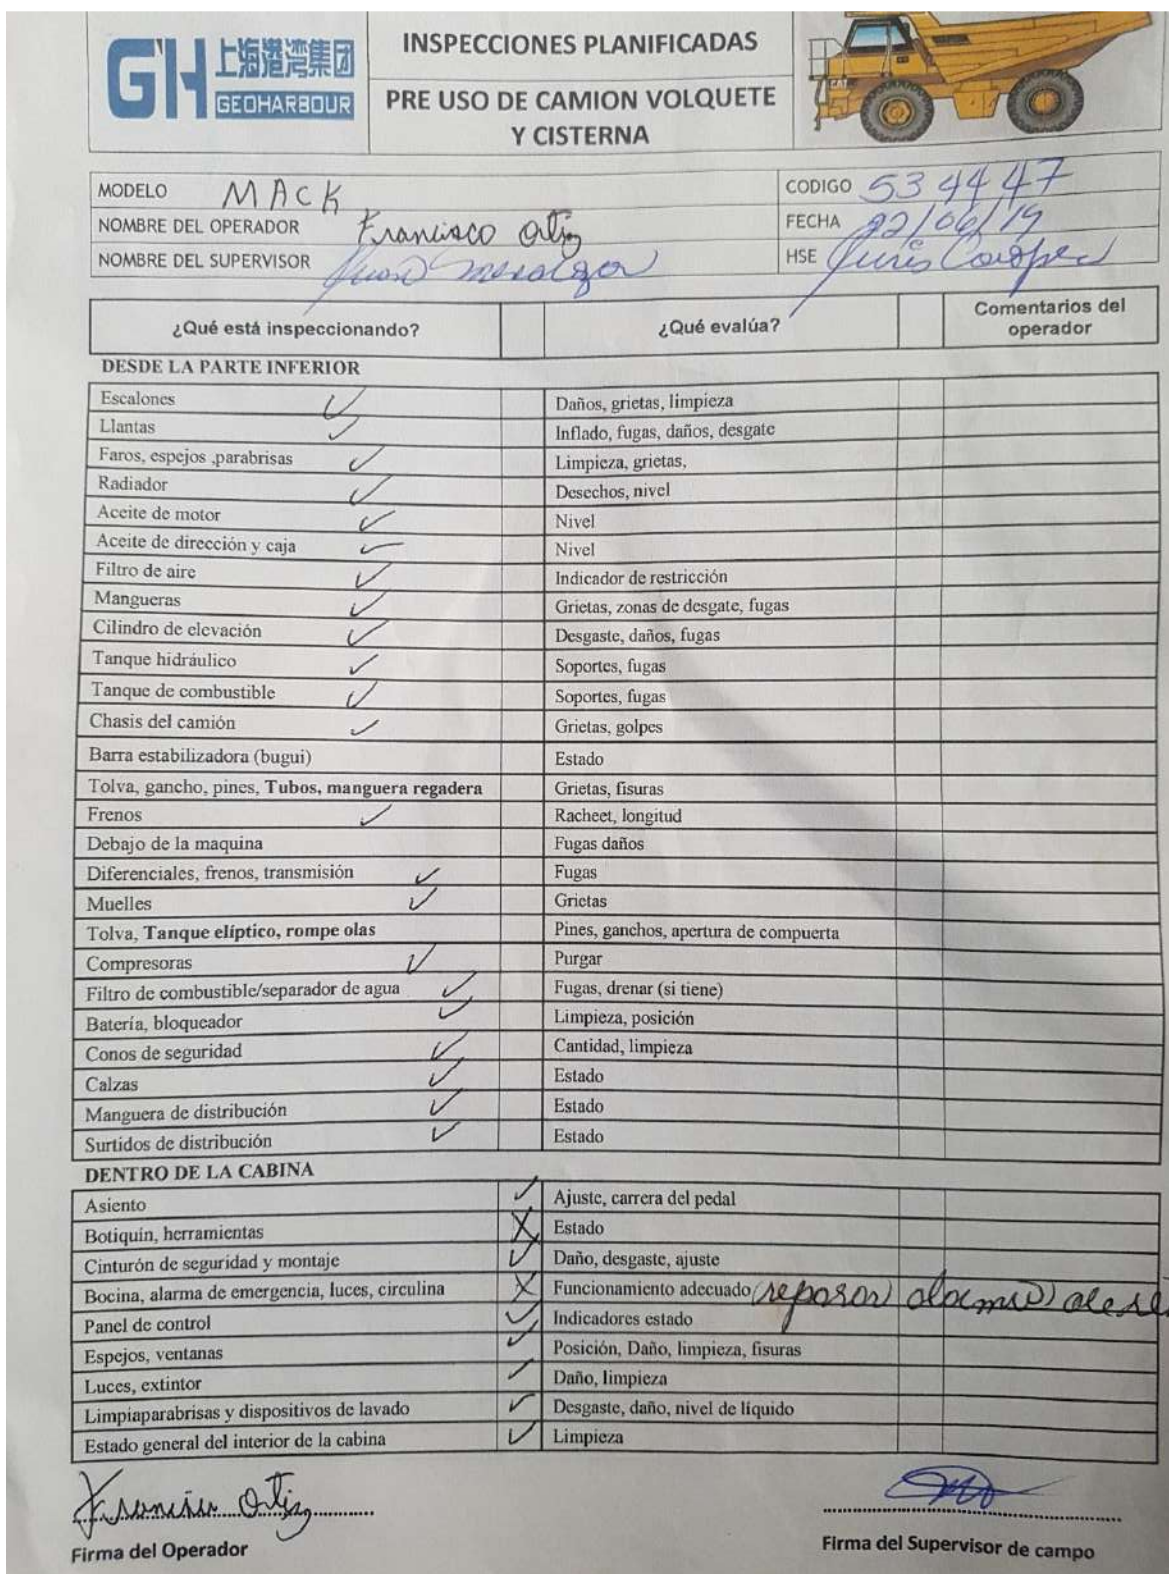 GH 上海港湾集团
GEOHARBOUR
INSPECCIONES PLANIFICADAS
PRE USO DE CAMION VOLQUETE
Y CISTERNA
MODELO MACK
CODIGO 534447
NOMBRE DEL OPERADOR Francisco Ortiz
FECHA 22/06/19
NOMBRE DEL SUPERVISOR Juan
HSE
¿Qué está inspeccionando? ¿Qué evalúa? Comentarios del operador
DESDE LA PARTE INFERIOR
Escalones ✓ Daños, grietas, limpieza
Llantas ✓ Inflado, fugas, daños, desgate
Faros, espejos ,parabrisas ✓ Limpieza, grietas,
Radiador ✓ Desechos, nivel
Aceite de motor ✓ Nivel
Aceite de dirección y caja ✓ Nivel
Filtro de aire ✓ Indicador de restricción
Mangueras ✓ Grietas, zonas de desgate, fugas
Cilindro de elevación ✓ Desgaste, daños, fugas
Tanque hidráulico ✓ Soportes, fugas
Tanque de combustible ✓ Soportes, fugas
Chasis del camión ✓ Grietas, golpes
Barra estabilizadora (bugui) Estado
Tolva, gancho, pines, Tubos, manguera regadera Grietas, fisuras
Frenos ✓ Racheet, longitud
Debajo de la maquina Fugas daños
Diferenciales, frenos, transmisión ✓ Fugas
Muelles ✓ Grietas
Tolva, Tanque elíptico, rompe olas Pines, ganchos, apertura de compuerta
Compresoras ✓ Purgar
Filtro de combustible/separador de agua ✓ Fugas, drenar (si tiene)
Batería, bloqueador ✓ Limpieza, posición
Conos de seguridad ✓ Cantidad, limpieza
Calzas ✓ Estado
Manguera de distribución ✓ Estado
Surtidos de distribución ✓ Estado
DENTRO DE LA CABINA
Asiento ✓ Ajuste, carrera del pedal
Botiquín, herramientas X Estado
Cinturón de seguridad y montaje ✓ Daño, desgaste, ajuste
Bocina, alarma de emergencia, luces, circulina X Funcionamiento adecuado
Panel de control ✓ Indicadores estado
Espejos, ventanas ✓ Posición, Daño, limpieza, fisuras
Luces, extintor ✓ Daño, limpieza
Limpiaparabrisas y dispositivos de lavado ✓ Desgaste, daño, nivel de líquido
Estado general del interior de la cabina ✓ Limpieza
Ortiz
Firma del Operador
Firma del Supervisor de campo